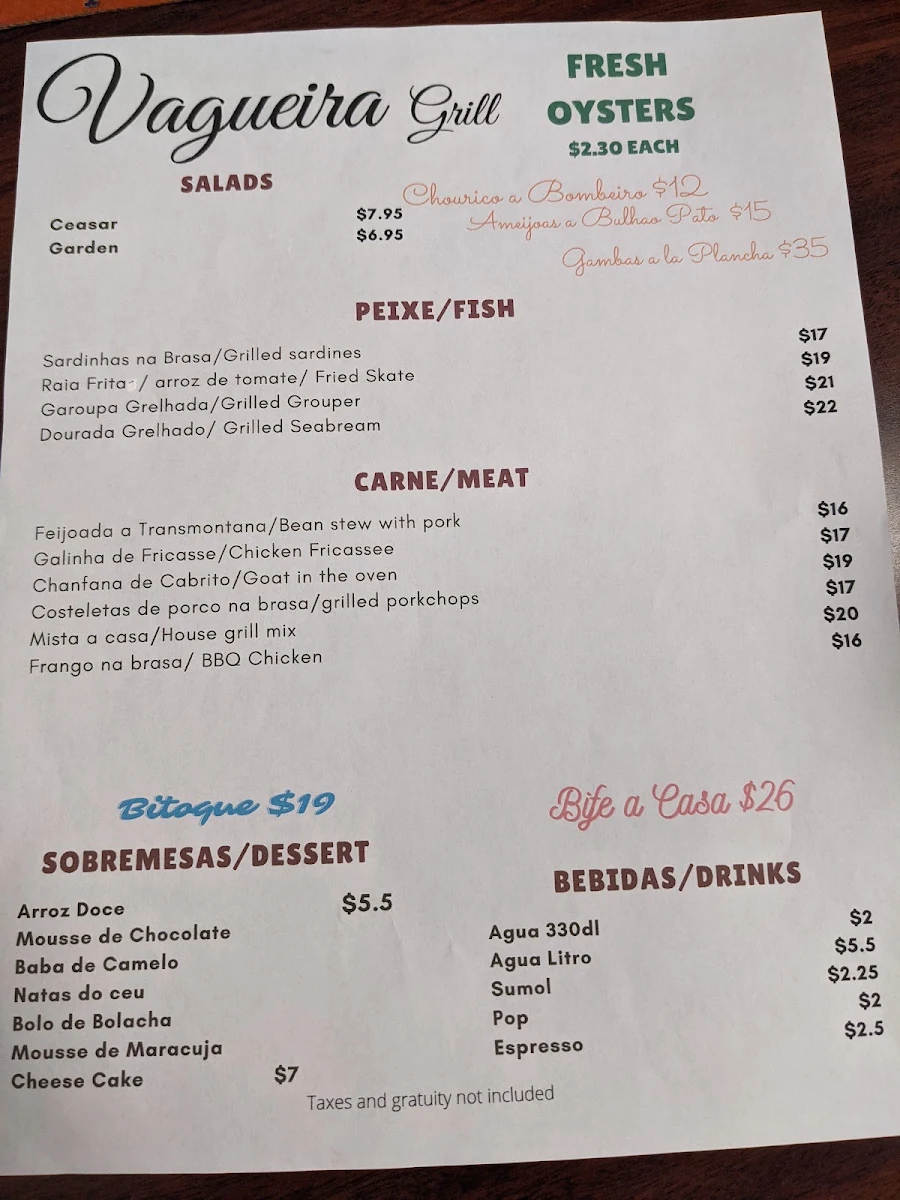 Vagueira Grill
FRESH
OYSTERS
$2.30 EACH
SALADS
Ceasar $7.95
Garden $6.95
Chourico a Bombeiro $12
Ameijoas a Bulhao Pato $15
Gambas a la Plancha $35
PEIXE/FISH
Sardinhas na Brasa/Grilled sardines $17
Raia Frita / arroz de tomate/ Fried Skate $19
Garoupa Grelhada/Grilled Grouper $21
Dourada Grelhado/ Grilled Seabream $22
CARNE/MEAT
Feijoada a Transmontana/Bean stew with pork $16
Galinha de Fricasse/Chicken Fricassee $17
Chanfana de Cabrito/Goat in the oven $19
Costeletas de porco na brasa/grilled porkchops $17
Mista a casa/House grill mix $20
Frango na brasa/ BBQ Chicken $16
Bitoque $19
Bife a Casa $26
SOBREMESAS/DESSERT
Arroz Doce $5.5
Mousse de Chocolate
Baba de Camelo
Natas do ceu
Bolo de Bolacha
Mousse de Maracuja
Cheese Cake $7
BEBIDAS/DRINKS
Agua 330dl $2
Agua Litro $5.5
Sumol $2.25
Pop $2
Espresso $2.5
Taxes and gratuity not included